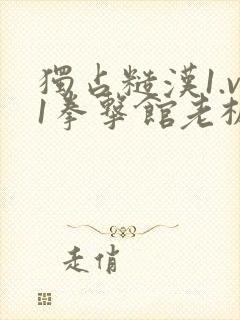 獨占糙漢1.v
1拳擊館老板
走俏